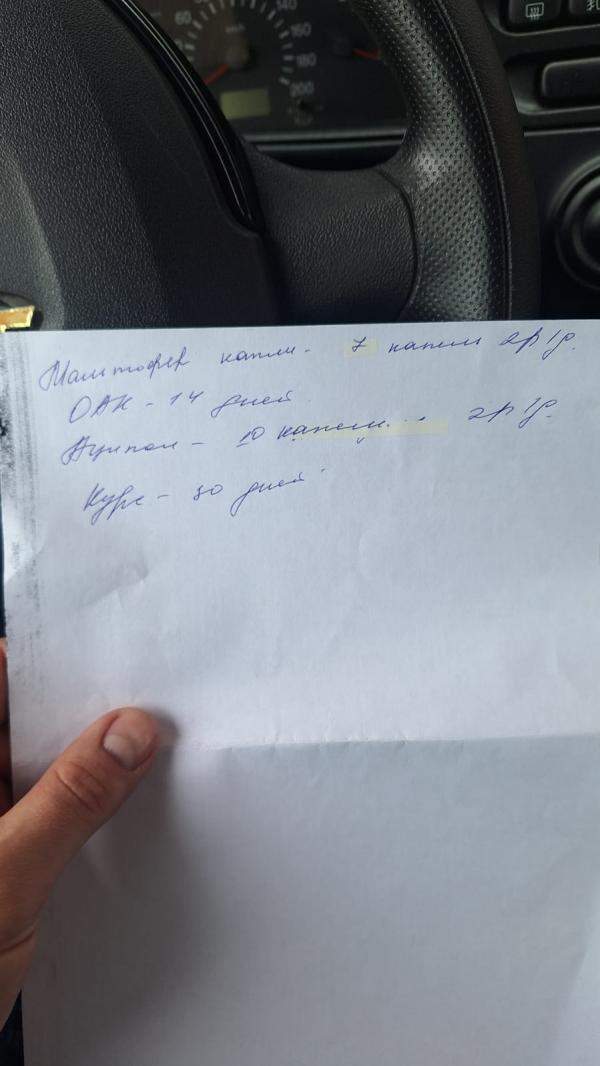 60
140
160
180
200
Мальтофер капли - 7 капель 2р/д.
ОАК - 14 дней
Аципол - 10 капель... 2р/д.
Курс - 30 дней